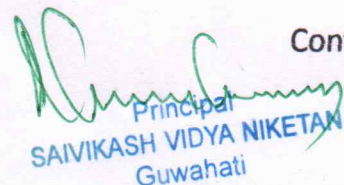 Con
Principal
SAIVIKASH VIDYA NIKETAN
Guwahati